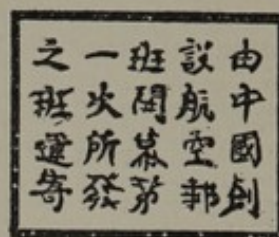 由中國創
設航空郵
班開幕第
一次所發
之班運寄